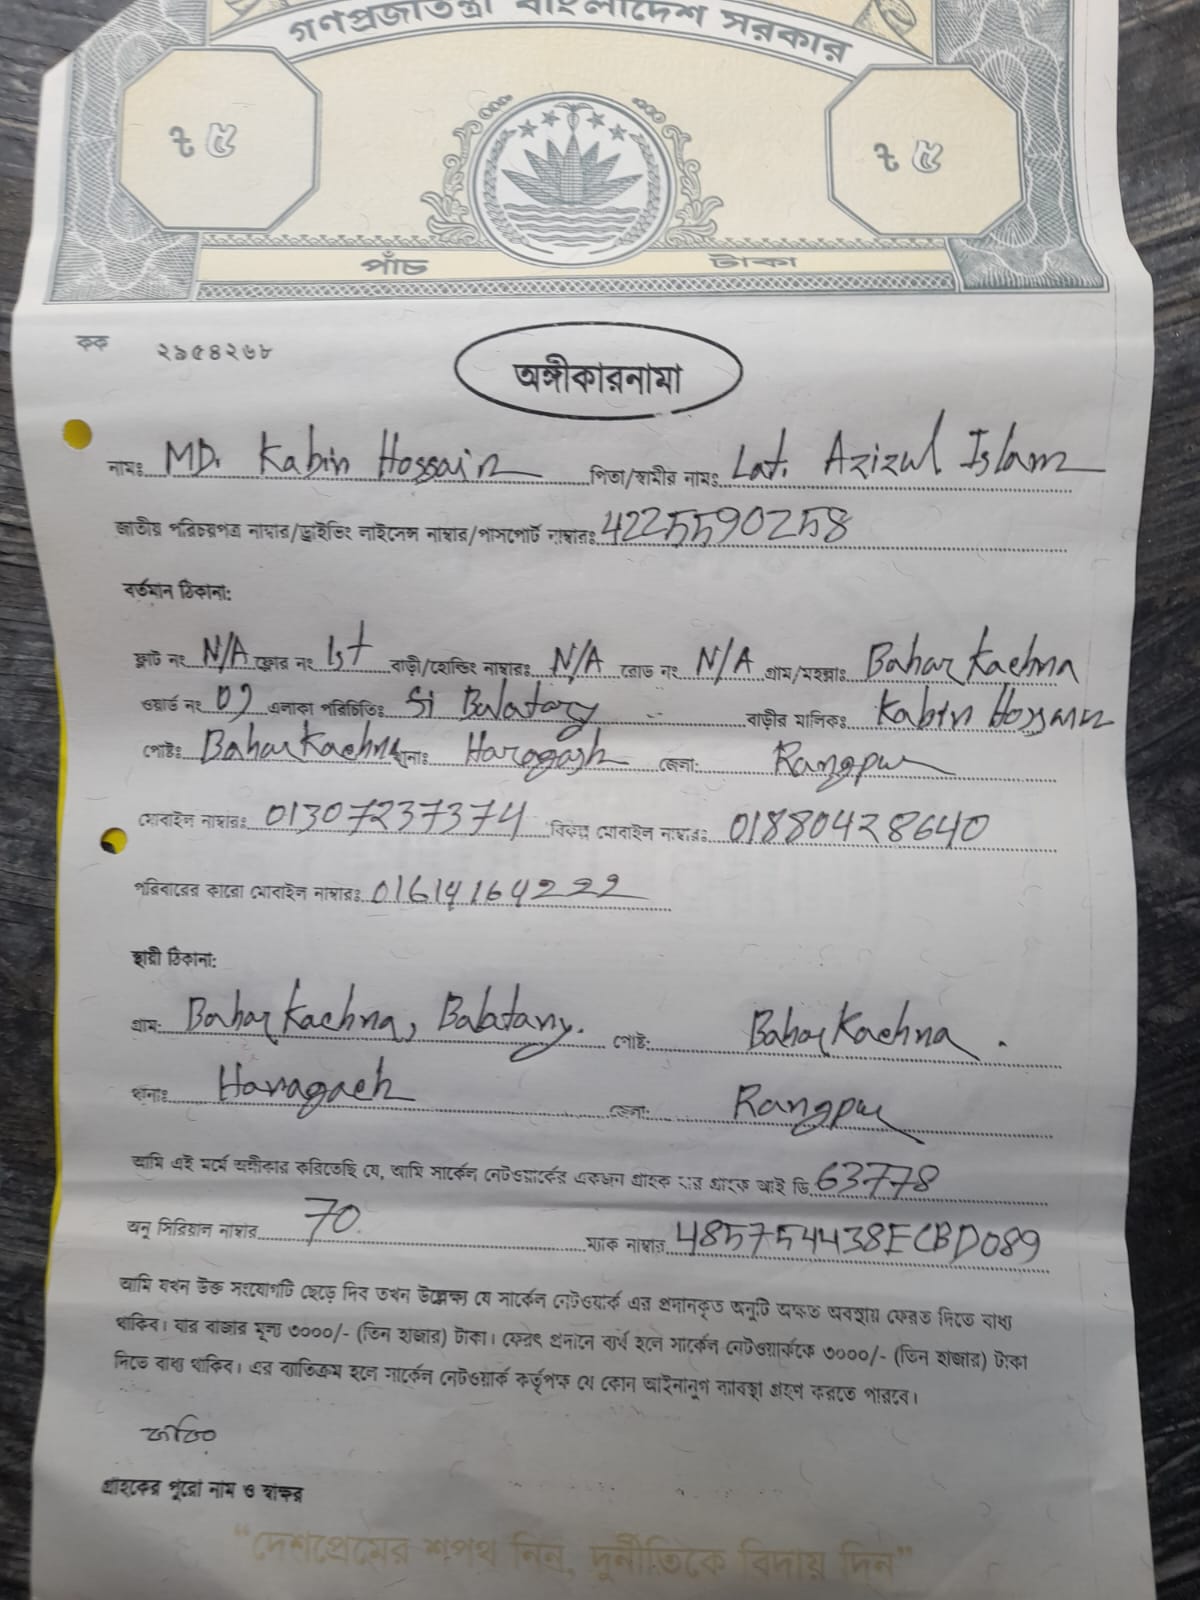 গণপ্রজাতন্ত্রী বাংলাদেশ সরকার
৳ ৫ ৳ ৫
পাঁচ টাকা
কক ২৯৫৪২৬৮
অঙ্গীকারনামা
নামঃ MD. Kabin Hossain পিতা/স্বামীর নামঃ Lat. Azizul Islam
জাতীয় পরিচয়পত্র নাম্বার/ড্রাইভিং লাইসেন্স নাম্বার/পাসপোর্ট নাম্বারঃ 4225590258
বর্তমান ঠিকানা:
ফ্লাট নং N/A ফ্লোর নং 1st বাড়ী/হোল্ডিং নাম্বারঃ N/A রোড নং N/A গ্রাম/মহল্লাঃ Bahar Kachna
ওয়ার্ড নং 09 এলাকা পরিচিতিঃ Balatary বাড়ীর মালিকঃ Kabin Hossain
পোষ্টঃ Bahar Kachna থানাঃ Haragash জেলা: Rangpur
মোবাইল নাম্বারঃ 01307237374 বিকল্প মোবাইল নাম্বারঃ 01880428640
পরিবারের কারো মোবাইল নাম্বারঃ 01614164222
স্থায়ী ঠিকানা:
গ্রাম: Bahar Kachna, Balatary. পোষ্ট: Bahar Kachna.
থানাঃ Haragach জেলা: Rangpur
আমি এই মর্মে অঙ্গীকার করিতেছি যে, আমি সার্কেল নেটওয়ার্কের একজন গ্রাহক যার গ্রাহক আই ডি 63778
অনু সিরিয়াল নাম্বার 70 ম্যাক নাম্বার 485754438ECBD089
আমি যখন উক্ত সংযোগটি ছেড়ে দিব তখন উল্লেক্ষ্য যে সার্কেল নেটওয়ার্ক এর প্রদানকৃত অনুটি অক্ষত অবস্থায় ফেরত দিতে বাধ্য
থাকিব। যার বাজার মূল্য ৩০০০/- (তিন হাজার) টাকা। ফেরৎ প্রদানে ব্যর্থ হলে সার্কেল নেটওয়ার্ককে ৩০০০/- (তিন হাজার) টাকা
দিতে বাধ্য থাকিব। এর ব্যতিক্রম হলে সার্কেল নেটওয়ার্ক কর্তৃপক্ষ যে কোন আইনানুগ ব্যাবস্থা গ্রহণ করতে পারবে।
গ্রাহকের পুরো নাম ও স্বাক্ষর
“দেশপ্রেমের শপথ নিন, দুর্নীতিকে বিদায় দিন”